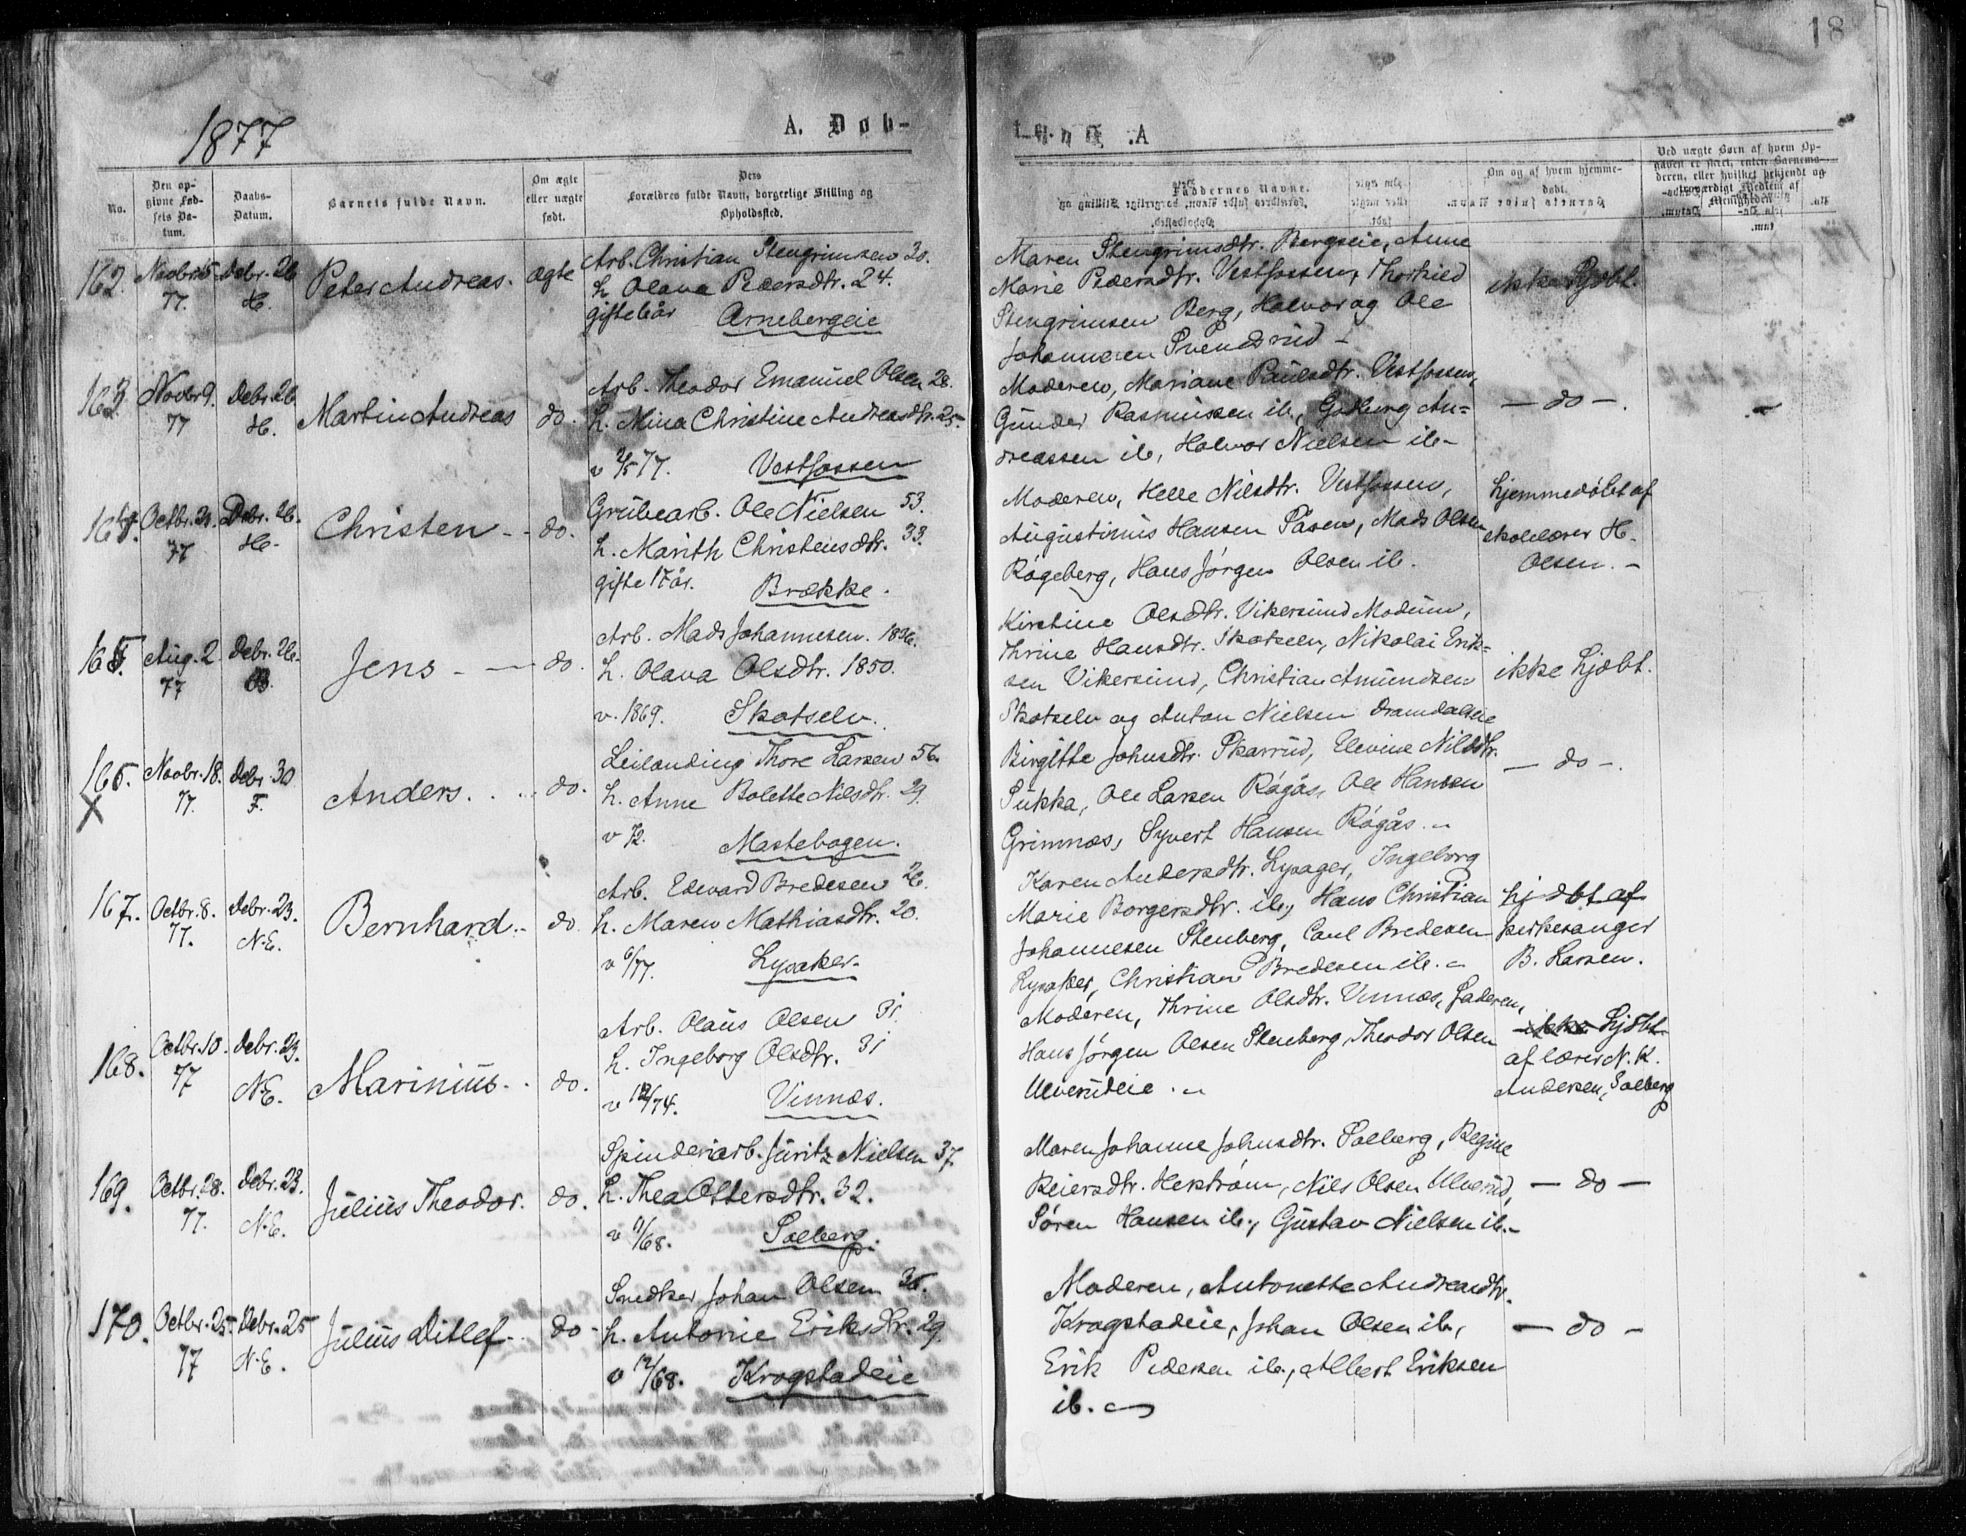 18
1877
A. Døb-
No.
Den op-
givne Fød-
sels Da-
tum.
Daabs-
Datum.
Barnets fulde Navn.
Om ægte
eller uægte
født.
Forældres fulde Navn, borgerlige Stilling og
Opholdssted.
Faddernes Navne.
Om og af hvem hjemme-
døbt.
Ved uægte Børn af hvem Op-
gaven er skeet, enten Barnemo-
deren, eller hvilket bekjendt og
troværdigt Medlem af
Menigheden
162. Novbr. 5. Debr. 26 Peter Andreas. ægte
77. H.
Arb. Christian Stengrimsen 30.
h. Olava Pedersdtr. 24.
gifte 6 år Arnebergeie
Maren Stengrimsdtr. Bergseie, Anne
Marie Pedersdtr. Vestfossen, Thorkild
Stengrimsen Berg, Halvor og Ole
Johannesen Svendsrud -
ikke hjdbt.
163 Novbr 9. Debr. 26 Martin Andreas do.
77 H.
Arb. Theodor Emanuel Olsen 28.
h. Mina Christine Andreasdtr. 25.
v 2/5 77. Vestfossen
Moderen, Mariane Paulsdtr. Vestfossen,
Gunder Rasmussen ib., Gedburg An=
dreassen ib, Halvor Nielsen ib-
- do -.
164. Octbr. 21. Debr. 26. Christen - do.
77 H.
Grubearb. Ole Nielsen 53.
h. Marith Christensdtr. 33.
gifte 17 år. Brække.
Moderen, Helle Nilsdtr. Vestfossen,
Augustinus Hansen Påsen, Mads Olsen
Røgeberg, Hans Jørgen Olsen ib.
hjemmedøbt af
skolelærer H.
Olsen. -
165. Aug. 2. Debr. 26. Jens - - do.
77 B.
Arb. Mads Johannesen. 1836.
h. Olava Olsdtr. 1850.
v. 1869. Skotselv.
Kirstine Olsdtr. Vikersund Modum,
Thrine Hansdtr. Skotselv, Nikolai Erik=
sen Vikersund, Christian Amundsen
Skotselv og Anton Nielsen Dramdalseie
ikke hjdbt.
165. Novbr. 18. Debr. 30 Anders. do.
X 77. F.
Leilænding Thore Larsen 56.
h. Anne Bolette Nilsdtr. 29.
v 72. Mastebogen.
Birgitte Johnsdtr. Skarrud, Elevine Nilsdtr.
Sukka, Ole Larsen Røgås, Ole Hansen
Grimnæs, Syvert Hansen Røgås. -
- do -.
167. Octbr. 8. Debr. 23. Bernhard. do.
77. N.E.
Arb. Edvard Bredesen 26.
h. Maren Mathiasdtr. 20.
v 6/77. Lysaker.
Karen Andersdtr. Lysager, Ingeborg
Marie Borgersdtr. ib., Hans Christian
Johannesen Stenberg, Carl Bredesen
Lysaker, Christian Bredesen ib. -
hjdbt af
kirkesanger
B. Larsen.
168. Octbr. 10. Debr. 23. Marinius. do.
77 N.E.
Arb. Olaus Olsen 31
h. Ingeborg Olsdtr. 31
v 12/74. Vinnæs.
Moderen, Thrine Olsdtr. Vinnæs, Faderen,
Hans Jørgen Olsen Stenberg, Theodor Olsen
Ulverudeie. -
ikke hjdbt
af lærer N. K.
Andersen, Solberg
169. Octbr. 28. Debr. 23. Julius Theodor. do.
77. N.E.
Spinderiarb. Juritz Nielsen 37.
h. Thea Ottersdtr. 32.
v 11/68. Solberg.
Maren Johanne Johnsdtr. Solberg, Regine
Reiersdtr. Herstrøm, Nils Olsen Ulverud,
Søren Hansen ib., Gustav Nielsen ib.-
- do -
170. Octbr. 25. Debr. 25 Julius Ditlef. do -
77 N.E.
Snedker Johan Olsen 35.
h. Antonie Eriksdtr. 29.
v 12/68. Krogstadeie
Moderen, Antonette Andreasdtr.
Krogstadeie, Johan Olsen ib.,
Erik Pedersen ib., Albert Eriksen
ib. -
- do -